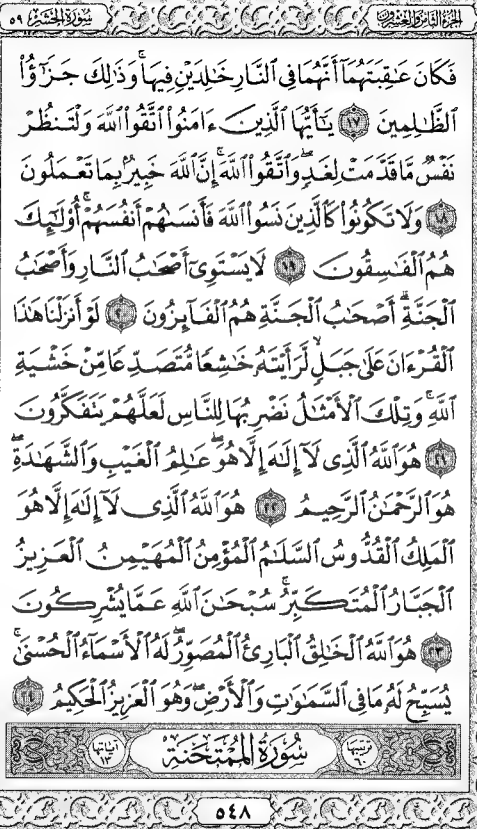 الجزء الثامن والعشرون سورة الحشر ٥٩
فَكَانَ عَٰقِبَتَهُمَآ أَنَّهُمَا فِي ٱلنَّارِ خَٰلِدَيْنِ فِيهَاۚ وَذَٰلِكَ جَزَٰٓؤُا۟
ٱلظَّٰلِمِينَ ١٧ يَٰٓأَيُّهَا ٱلَّذِينَ ءَامَنُوا۟ ٱتَّقُوا۟ ٱللَّهَ وَلْتَنظُرْ
نَفْسٌ مَّا قَدَّمَتْ لِغَدٍۖ وَٱتَّقُوا۟ ٱللَّهَۚ إِنَّ ٱللَّهَ خَبِيرٌۢ بِمَا تَعْمَلُونَ
١٨ وَلَا تَكُونُوا۟ كَٱلَّذِينَ نَسُوا۟ ٱللَّهَ فَأَنسَىٰهُمْ أَنفُسَهُمْۚ أُو۟لَٰٓئِكَ
هُمُ ٱلْفَٰسِقُونَ ١٩ لَا يَسْتَوِىٓ أَصْحَٰبُ ٱلنَّارِ وَأَصْحَٰبُ
ٱلْجَنَّةِۚ أَصْحَٰبُ ٱلْجَنَّةِ هُمُ ٱلْفَآئِزُونَ ٢٠ لَوْ أَنزَلْنَا هَٰذَا
ٱلْقُرْءَانَ عَلَىٰ جَبَلٍ لَّرَأَيْتَهُۥ خَٰشِعًا مُّتَصَدِّعًا مِّنْ خَشْيَةِ
ٱللَّهِۚ وَتِلْكَ ٱلْأَمْثَٰلُ نَضْرِبُهَا لِلنَّاسِ لَعَلَّهُمْ يَتَفَكَّرُونَ
٢١ هُوَ ٱللَّهُ ٱلَّذِى لَآ إِلَٰهَ إِلَّا هُوَۖ عَٰلِمُ ٱلْغَيْبِ وَٱلشَّهَٰدَةِۖ
هُوَ ٱلرَّحْمَٰنُ ٱلرَّحِيمُ ٢٢ هُوَ ٱللَّهُ ٱلَّذِى لَآ إِلَٰهَ إِلَّا هُوَ
ٱلْمَلِكُ ٱلْقُدُّوسُ ٱلسَّلَٰمُ ٱلْمُؤْمِنُ ٱلْمُهَيْمِنُ ٱلْعَزِيزُ
ٱلْجَبَّارُ ٱلْمُتَكَبِّرُۚ سُبْحَٰنَ ٱللَّهِ عَمَّا يُشْرِكُونَ
٢٣ هُوَ ٱللَّهُ ٱلْخَٰلِقُ ٱلْبَارِئُ ٱلْمُصَوِّرُۖ لَهُ ٱلْأَسْمَآءُ ٱلْحُسْنَىٰۚ
يُسَبِّحُ لَهُۥ مَا فِي ٱلسَّمَٰوَٰتِ وَٱلْأَرْضِۖ وَهُوَ ٱلْعَزِيزُ ٱلْحَكِيمُ ٢٤
ترتيبها ٦٠ سُورَةُ الْمُمْتَحَنَةِ آياتها ١٣
٥٤٨